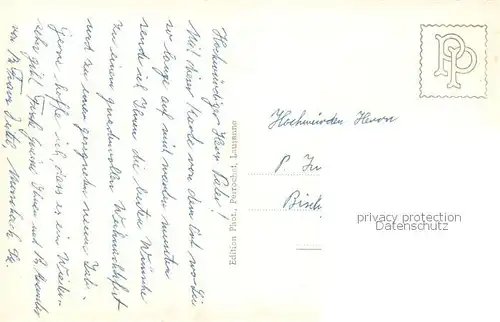 Hochwürdiger Herr Pater!
Mit dieser Karte von dem Ort wo Sie
so lange auf mich warten mussten
sende ich Ihnen die besten Wünsche
zu einem gnadenvollen Weihnachtsfest
und zu einem gesegneten neuen Jahr.
Gerne hoffe ich, dass es ein Wieder-
sehn gibt. Grüsse Ihnen und P.
von P. Franz
Edition Phot. Perrochet, Lausanne
PP
Hochwürden Herrn
P. Ju
Bisch
privacy protection
Datenschutz